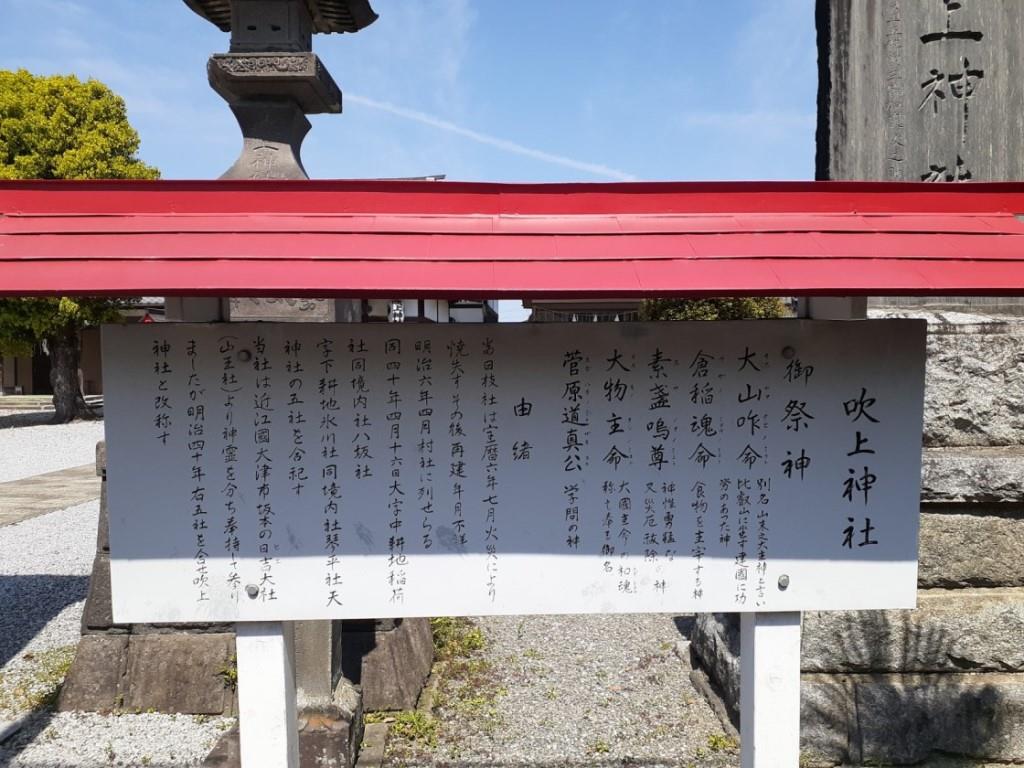 吹上神社
御祭神
大山咋命
別名山末之大主神と言い
比叡山に坐す建國に功
労のあった神
倉稲魂命 食物を主宰する神
素盞嗚尊
神性勇猛な神
又災厄祓除の神
大物主命
大國主命の和魂
称え奉る御名
菅原道真公 学問の神
由緒
当日枝社は宝暦六年七月火災により
焼失すその後再建年月不詳
明治六年四月村社に列せらる
同四十年四月十六日大字中耕地稲荷
社同境内社八坂社
字下耕地氷川社同境内社琴平社天
神社の五社を合祀す
当社は近江國大津市坂本の日吉大社
(山王社)より神霊を分ち奉持して参り
ましたが明治四十年右五社を合せ吹上
神社と改称す
上神社